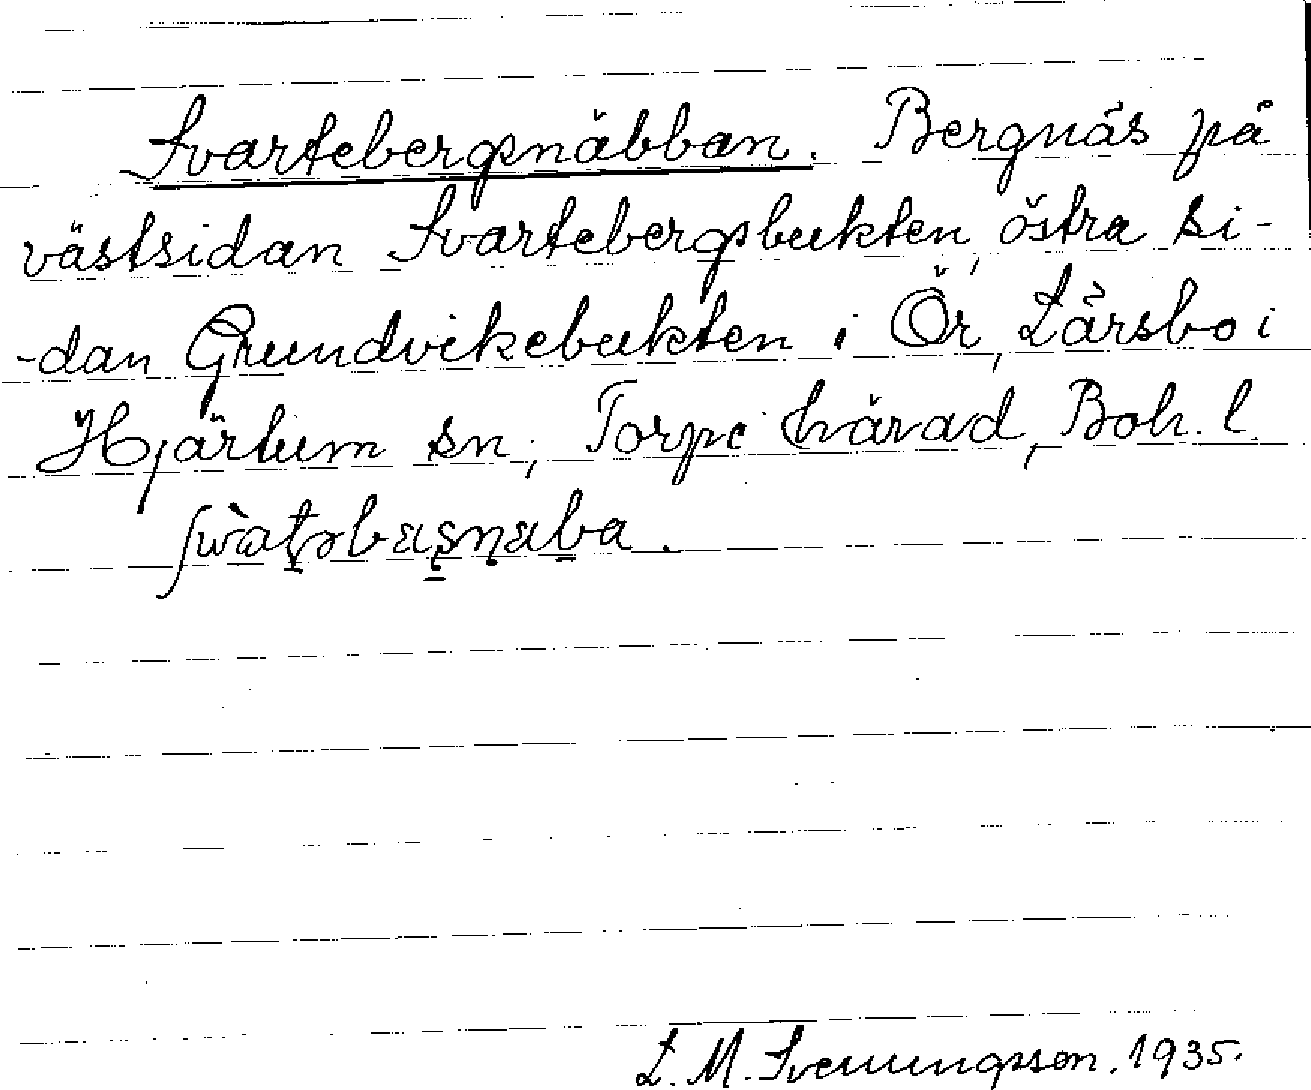 Svartebergsnäbban. Bergnäs på
västsidan Svartebergsbukten, östra si-
-dan Grundvikebukten i Ör, Lärsbo i
Hjärtum sn, Torpe härad, Boh. l.
L. M. Svenungsson. 1935.